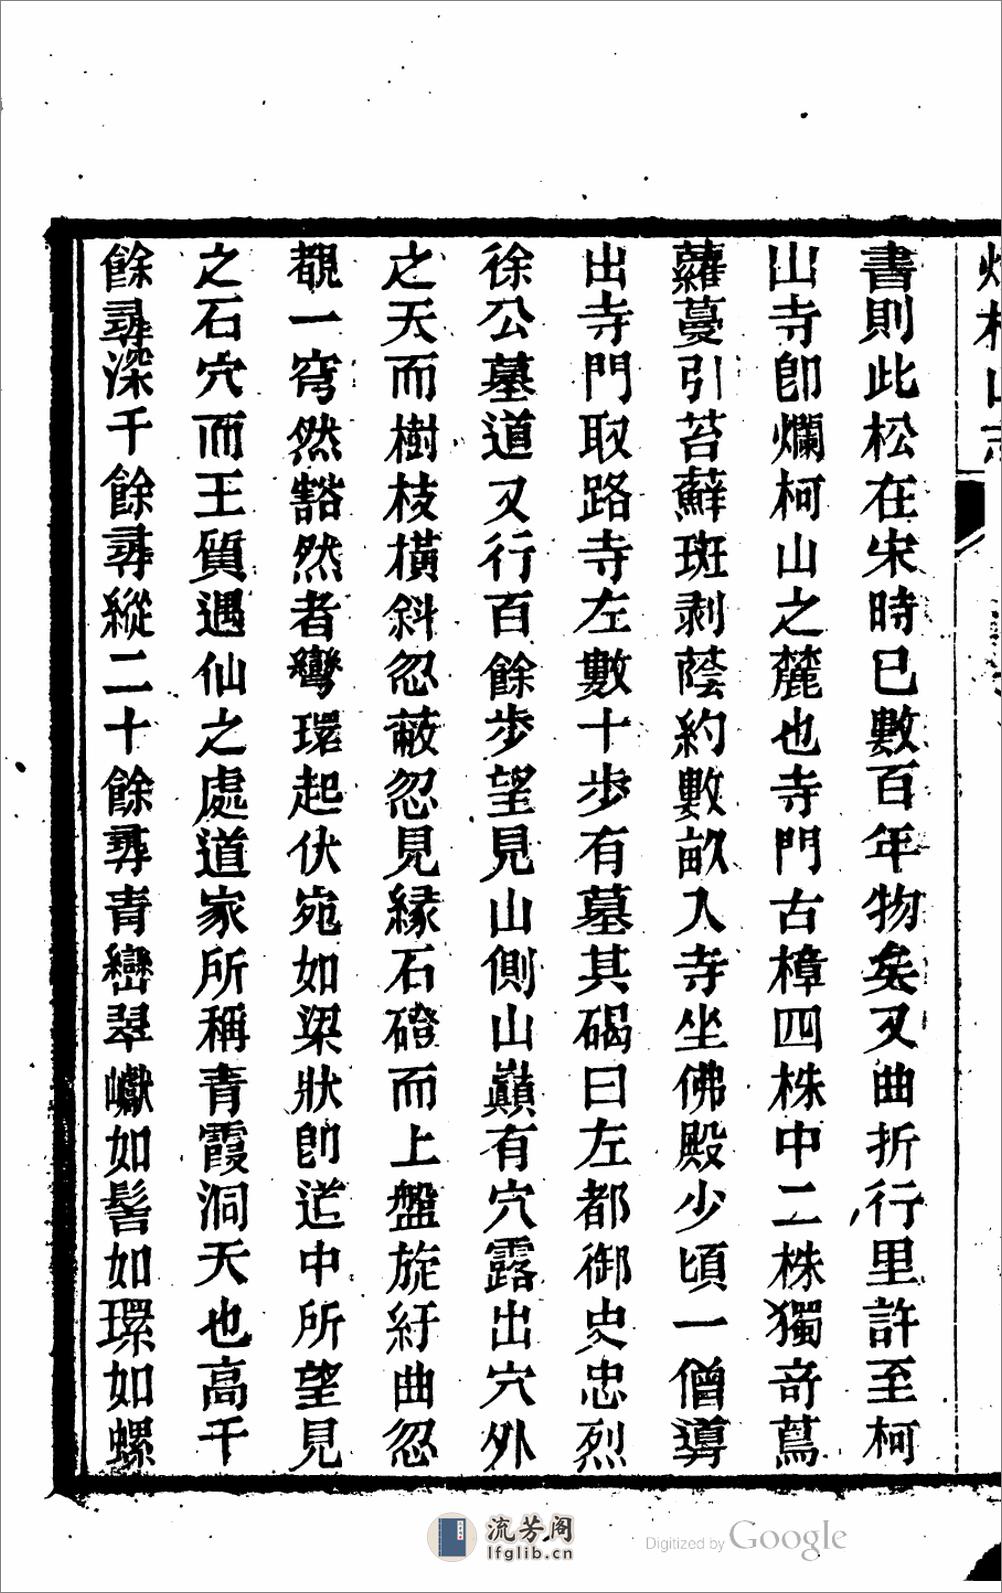 爛柯山志
書則此松在宋時已數百年物矣又曲折行里許至柯
山寺卽爛柯山之麓也寺門古樟四株中二株獨奇蔦
蘿蔓引苔蘚斑剥蔭約數畝入寺坐佛殿少頃一僧導
出寺門取路寺左數十步有墓其碣曰左都御史忠烈
徐公墓道又行百餘步望見山側山巔有穴露出穴外
之天而樹枝橫斜忽蔽忽見緣石磴而上盤旋紆曲忽
覩一穹然豁然者彎環起伏宛如梁狀卽遥中所望見
之石穴而王質遇仙之處道家所稱青霞洞天也高千
餘尋深千餘尋縱二十餘尋青巒翠巘如髻如環如螺
流芳阁
lfglib.cn
Digitized by Google